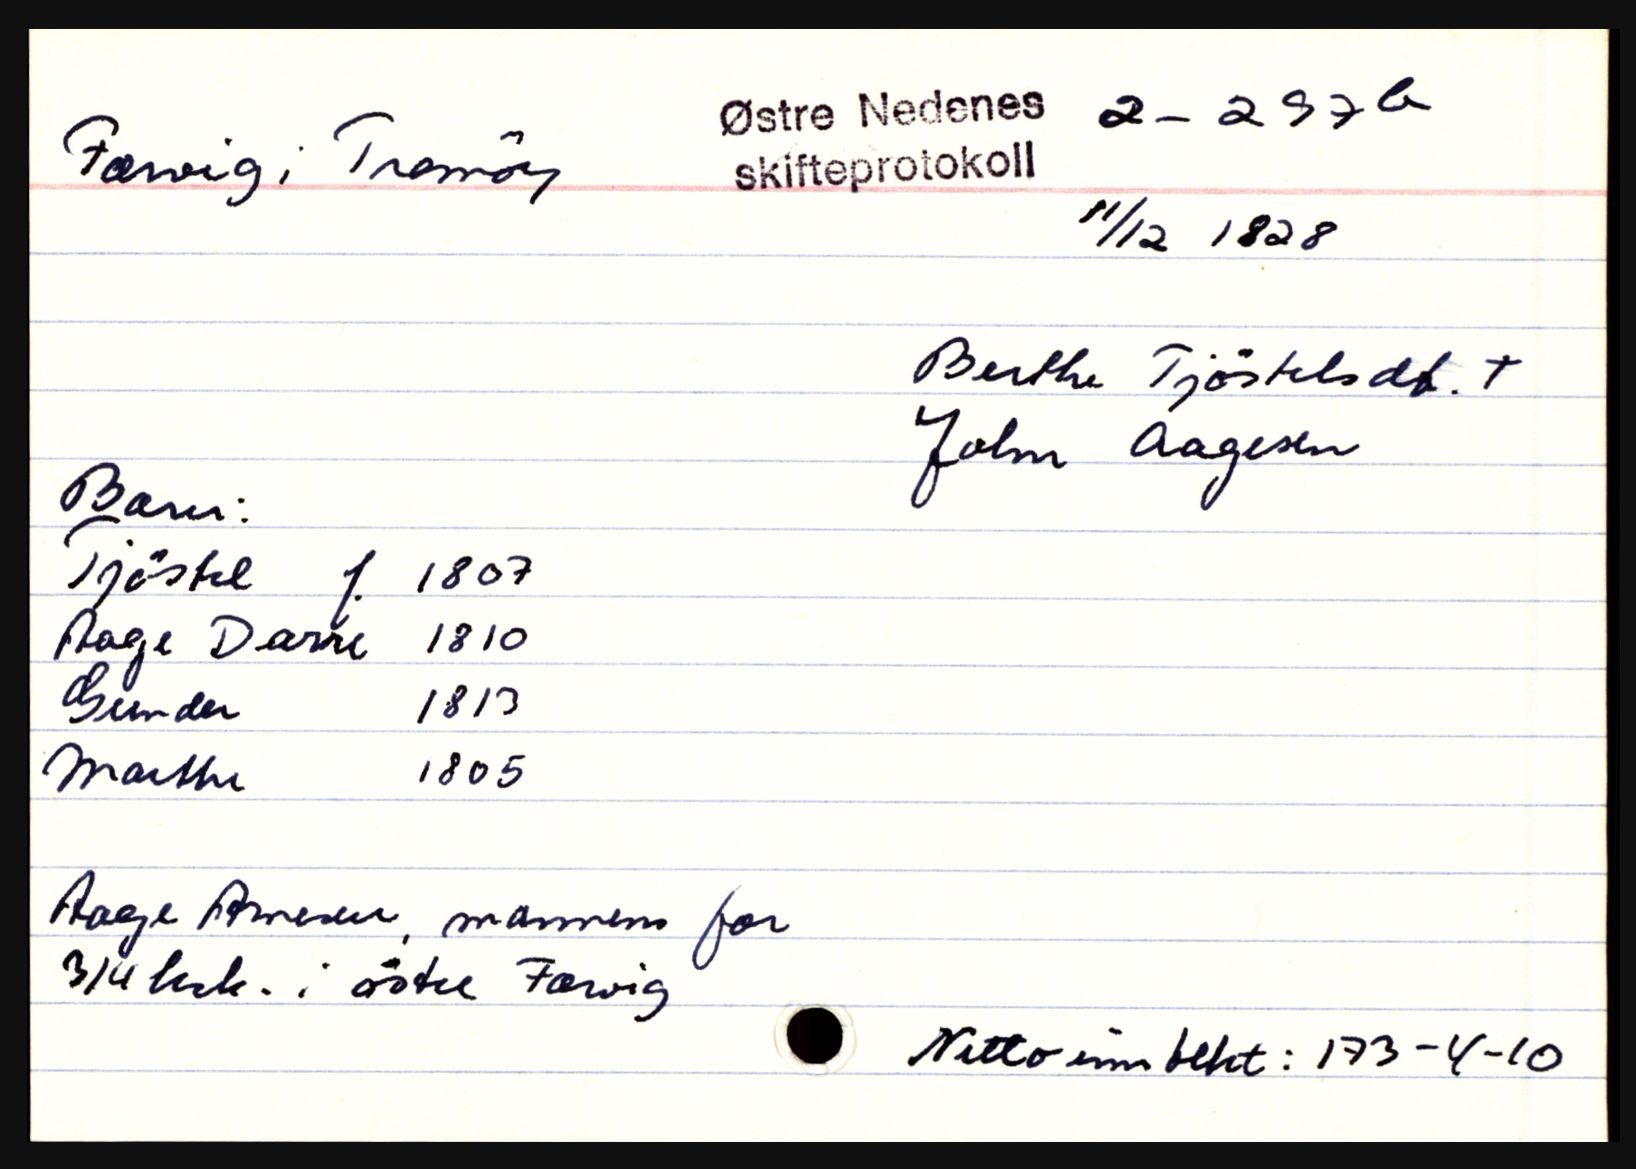 Færvig i Tromöy
Østre Nedenes 2 - 297 b
skifteprotokoll
11/12 1828
Berthe Tjöstelsdt. †
John Aagesen
Barn:
Tjöstel f. 1807
Aage Darre 1810
Gunder 1813
Marthe 1805
Aage Arnesen, mannens far
3/4 hch. i östre Færvig
Netto innteht: 173-4-10